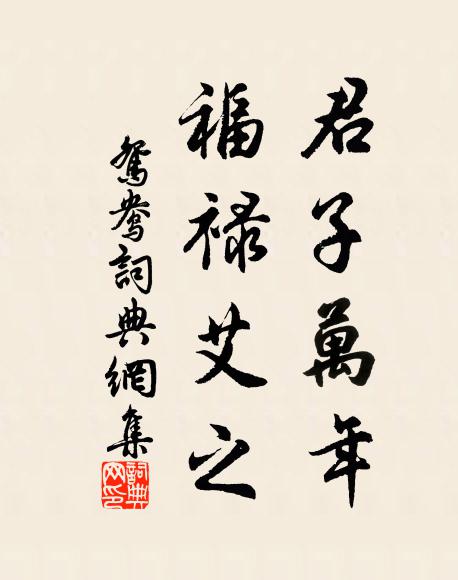 君子萬年
福祿艾之
鴛鴦詞典網集
詞典网印